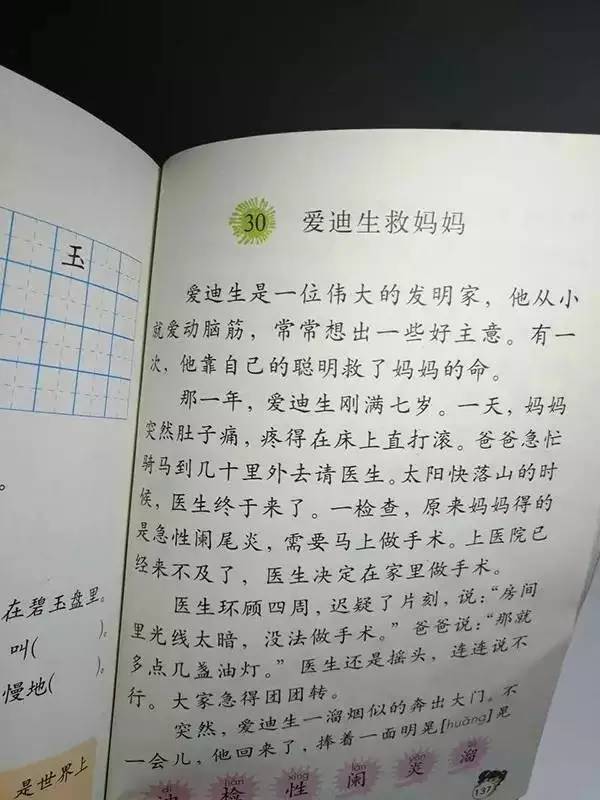 玉
在碧玉盘里。
叫(　　)。
慢地(　　)。
是世界上
30 爱迪生救妈妈
爱迪生是一位伟大的发明家，他从小
就爱动脑筋，常常想出一些好主意。有一
次，他靠自己的聪明救了妈妈的命。
那一年，爱迪生刚满七岁。一天，妈妈
突然肚子痛，疼得在床上直打滚。爸爸急忙
骑马到几十里外去请医生。太阳快落山的时
候，医生终于来了。一检查，原来妈妈得的
是急性阑尾炎，需要马上做手术。上医院已
经来不及了，医生决定在家里做手术。
医生环顾四周，迟疑了片刻，说：“房间
里光线太暗，没法做手术。”爸爸说：“那就
多点几盏油灯。”医生还是摇头，连连说不
行。大家急得团团转。
突然，爱迪生一溜烟似的奔出大门。不
一会儿，他回来了，捧着一面明晃[huǎng]晃
dí jiǎn xìng lán yán liū
迪 检 性 阑 炎 溜
137